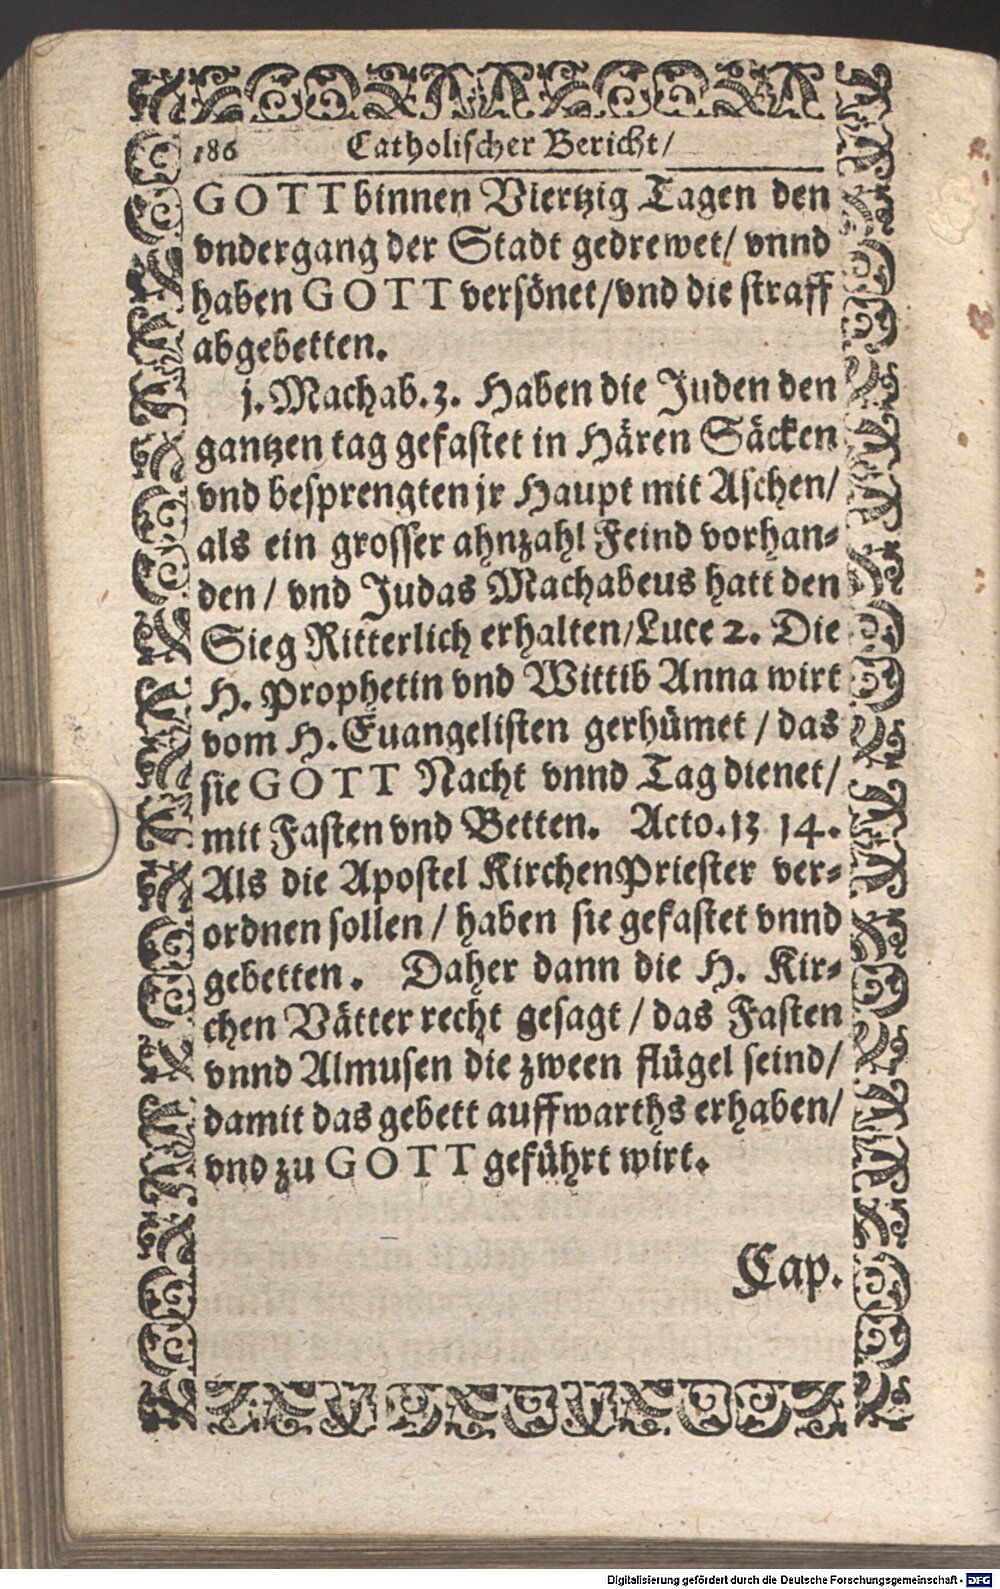 186 Catholischer Bericht/
GOTT binnen Viertzig Tagen den
vndergang der Stadt gedrewet/ vnnd
haben GOTT versönet/vnd die straff
abgebetten.
j. Machab. 3. Haben die Juden den
gantzen tag gefastet in Hären Säcken
vnd besprengten jr Haupt mit Aschen/
als ein grosser ahnzahl Feind vorhan-
den/ vnd Judas Machabeus hatt den
Sieg Ritterlich erhalten/Luce 2. Die
H. Prophetin vnd Wittib Anna wirt
vom H. Euangelisten gerhümet / das
sie GOTT Nacht vnnd Tag dienet/
mit Fasten vnd Betten. Acto. 13 14.
Als die Apostel KirchenPriester ver-
ordnen sollen / haben sie gefastet vnnd
gebetten. Daher dann die H. Kir-
chen Vätter recht gesagt / das Fasten
vnnd Almusen die zween flügel seind/
damit das gebett auffwarths erhaben/
vnd zu GOTT geführt wirt.
Cap.
Digitalisierung gefördert durch die Deutsche Forschungsgemeinschaft - DFG